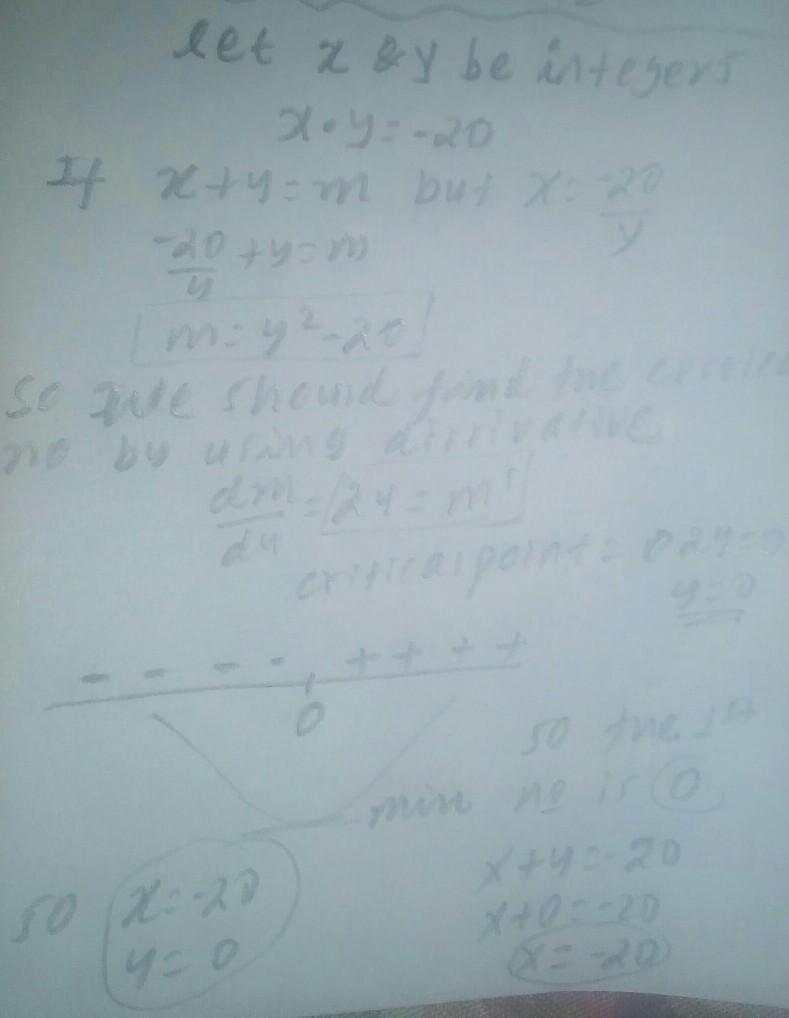 let x & y be integers
x·y=-20
If x+y=m but x=-20/y
-20/y +y=m
m=y²-20
So we should find the critical
no by using dirrivative
dm/dy = 2y=m'
critical point = 0 2y=0
y=0
- - - - + + + +
0
so the 1st
min no is 0
x+y=-20
x+0=-20
x=-20
so x=-20
y=0